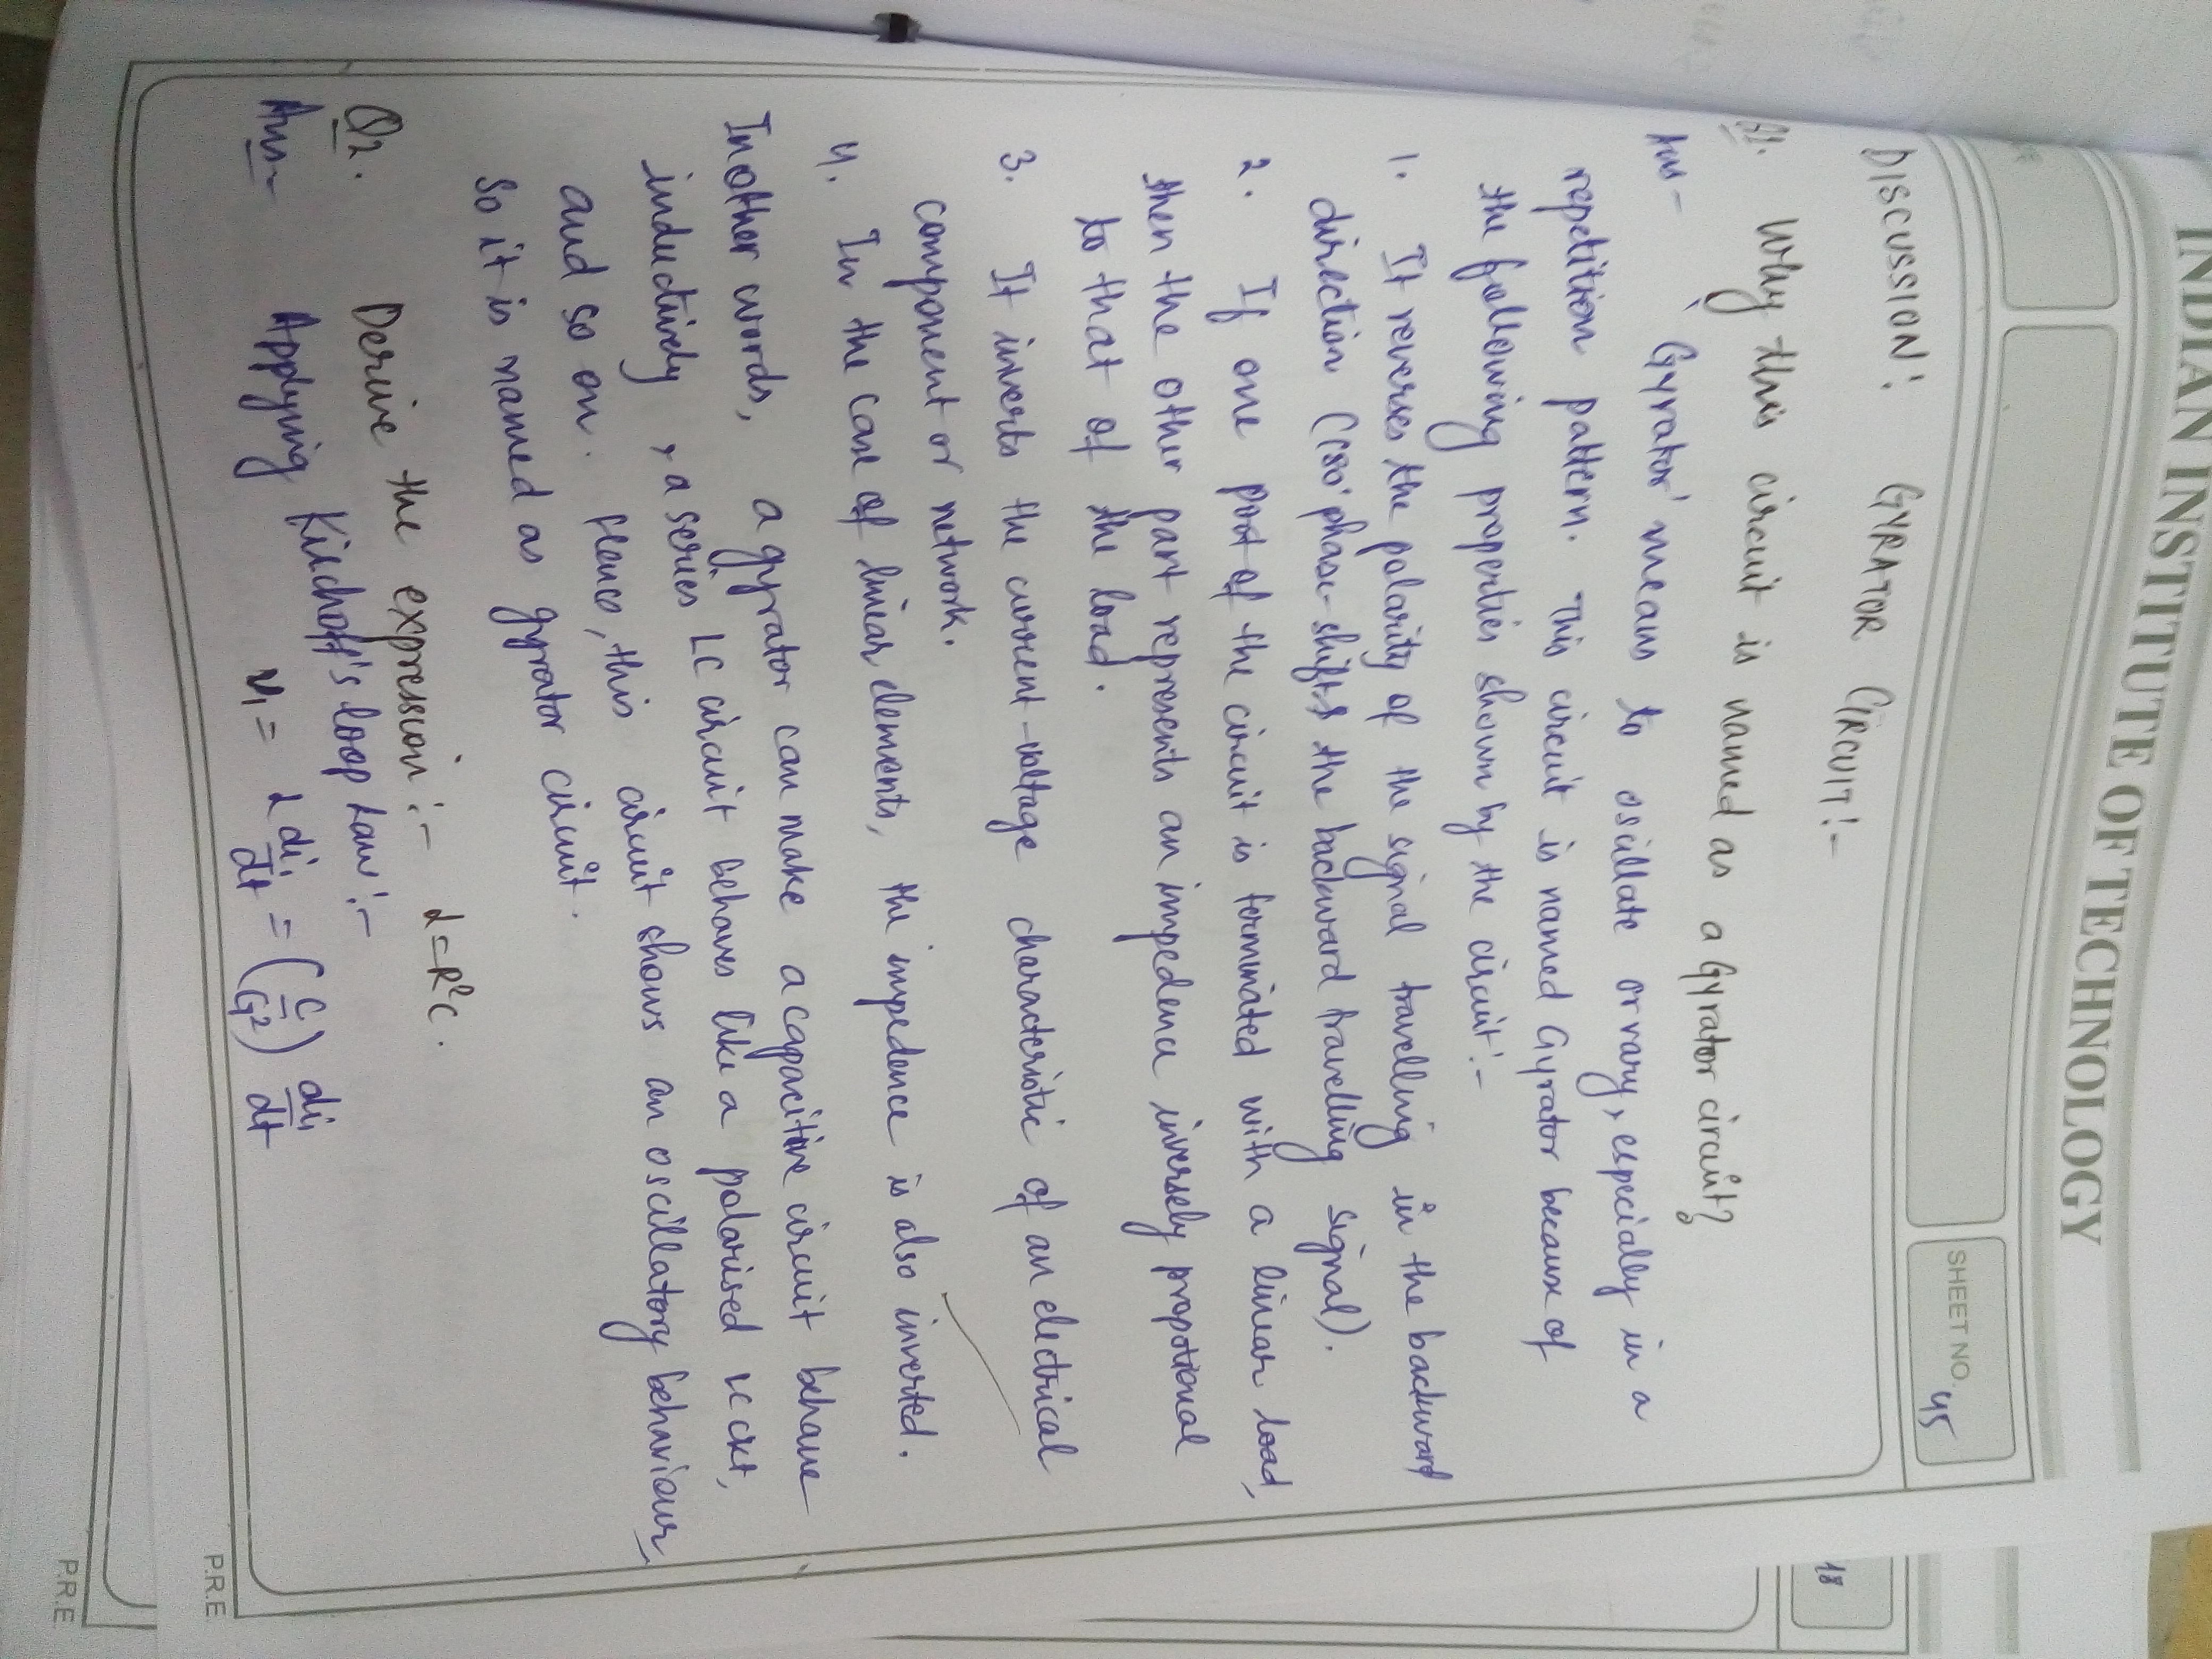 INDIAN INSTITUTE OF TECHNOLOGY
SHEET NO. 45
18
DISCUSSION:- GYRATOR CIRCUIT:-
Q1. Why this circuit is named as a Gyrator circuit?
Ans- 'Gyrator' means to oscillate or vary, especially in a
repetition pattern. This circuit is named Gyrator because of
the following properties shown by the circuit:-
1. It reverses the polarity of the signal travelling in the backward
direction (180° phase-shifts the backward travelling signal).
2. If one port of the circuit is terminated with a linear load,
then the other part represents an impedence inversely propotional
to that of the load.
3. It inverts the current-voltage characteristic of an electrical
component or network.
4. In the case of linear elements, the impedence is also inverted.
In other words, a gyrator can make a capacitive circuit behave
inductively, a series LC circuit behaves like a polarised ckt,
and so on. Hence, this circuit shows an oscillatory behaviour,
So it is named as gyrator circuit.
Q2. Derive the expression:- L=R²C.
Ans- Applying Kirchoff's loop Law:-
v₁ = L di₁/dt = (C/G²) di₁/dt
P.R.E
P.R.E